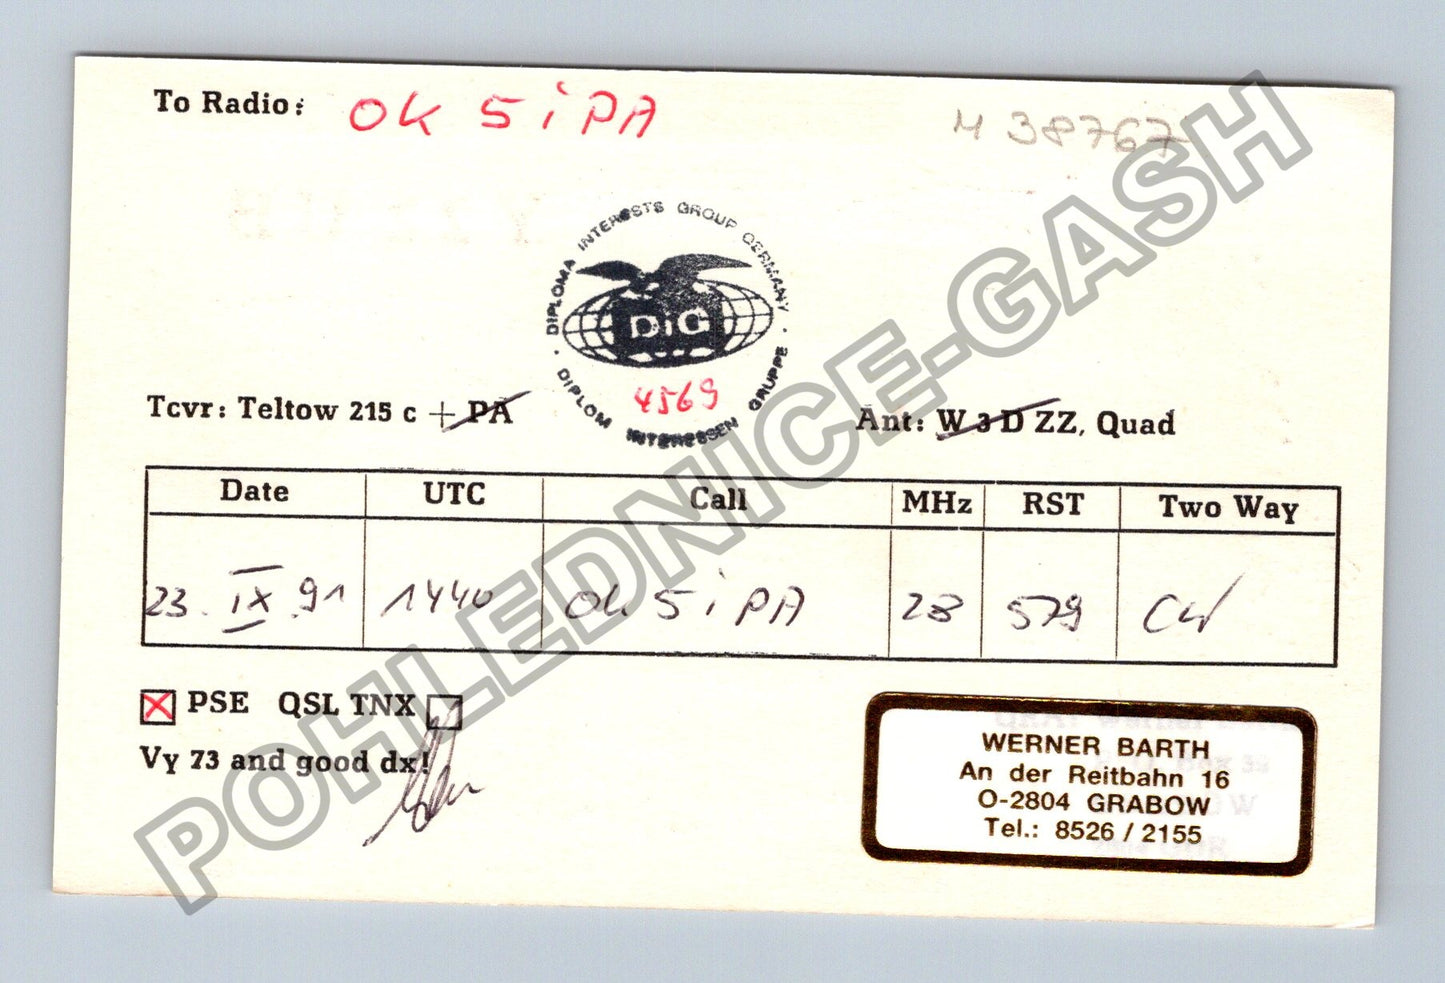 To Radio: OK 5 i PA
M 38767
DIPLOMA INTERESTS GROUP GERMANY
DIG
4569
DIPLOM INTERESSEN GRUPPE
Tcvr: Teltow 215 c + PA
Ant: W 3 D ZZ, Quad
Date UTC Call MHz RST Two Way
23. IX. 91 1440 OK 5 i PA 28 579 CW
PSE QSL TNX
Vy 73 and good dx!
WERNER BARTH
An der Reitbahn 16
O-2804 GRABOW
Tel.: 8526 / 2155
POHLEDNICE-GASH